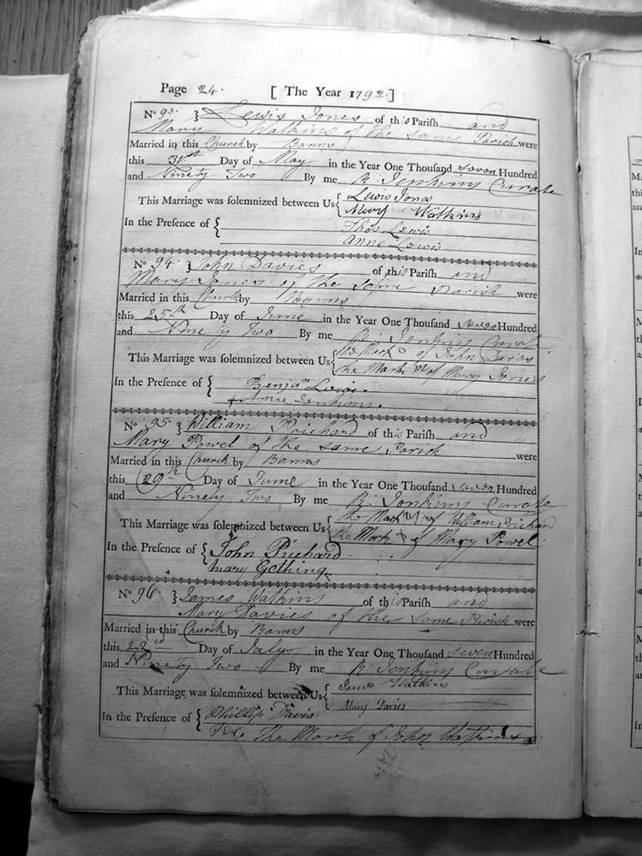 Page 24. [ The Year 1792. ]
No 93. } Lewis Jones of this Parish and
Mary Watkins of the same Parish were
Married in this Church by Banns
this 31st Day of May in the Year One Thousand seven Hundred
and Ninety Two By me R: Jenkins Curate
This Marriage was solemnized between Us { Lewis Jones
Mary Watkins
In the Presence of { Thos Lewis
Anne Lewis
No 94. } John Davies of this Parish and
Mary Jones of the same Parish were
Married in this Church by Banns
this 25th Day of June in the Year One Thousand seven Hundred
and Ninety Two By me R: Jenkins Curate
This Marriage was solemnized between Us { the Mark of John Davies
the Mark of Mary Jones
In the Presence of { Benjn Lewis
Anne Jenkins.
No 95. } William Prichard of this Parish and
Mary Powel of the same Parish were
Married in this Church by Banns
this 29th Day of June in the Year One Thousand seven Hundred
and Ninety Two By me R: Jenkins Curate
This Marriage was solemnized between Us { the Mark of William Prichard
the Mark of Mary Powel
In the Presence of { John Prichard
mary Gething
No 96. } James Watkins of this Parish and
Mary Davies of the same Parish were
Married in this Church by Banns
this 22d Day of July in the Year One Thousand seven Hundred
and Ninety Two By me R: Jenkins Curate
This Marriage was solemnized between Us { James Watkins
Mary Davies
In the Presence of { Phillip Davis
The Mark of John Watkins